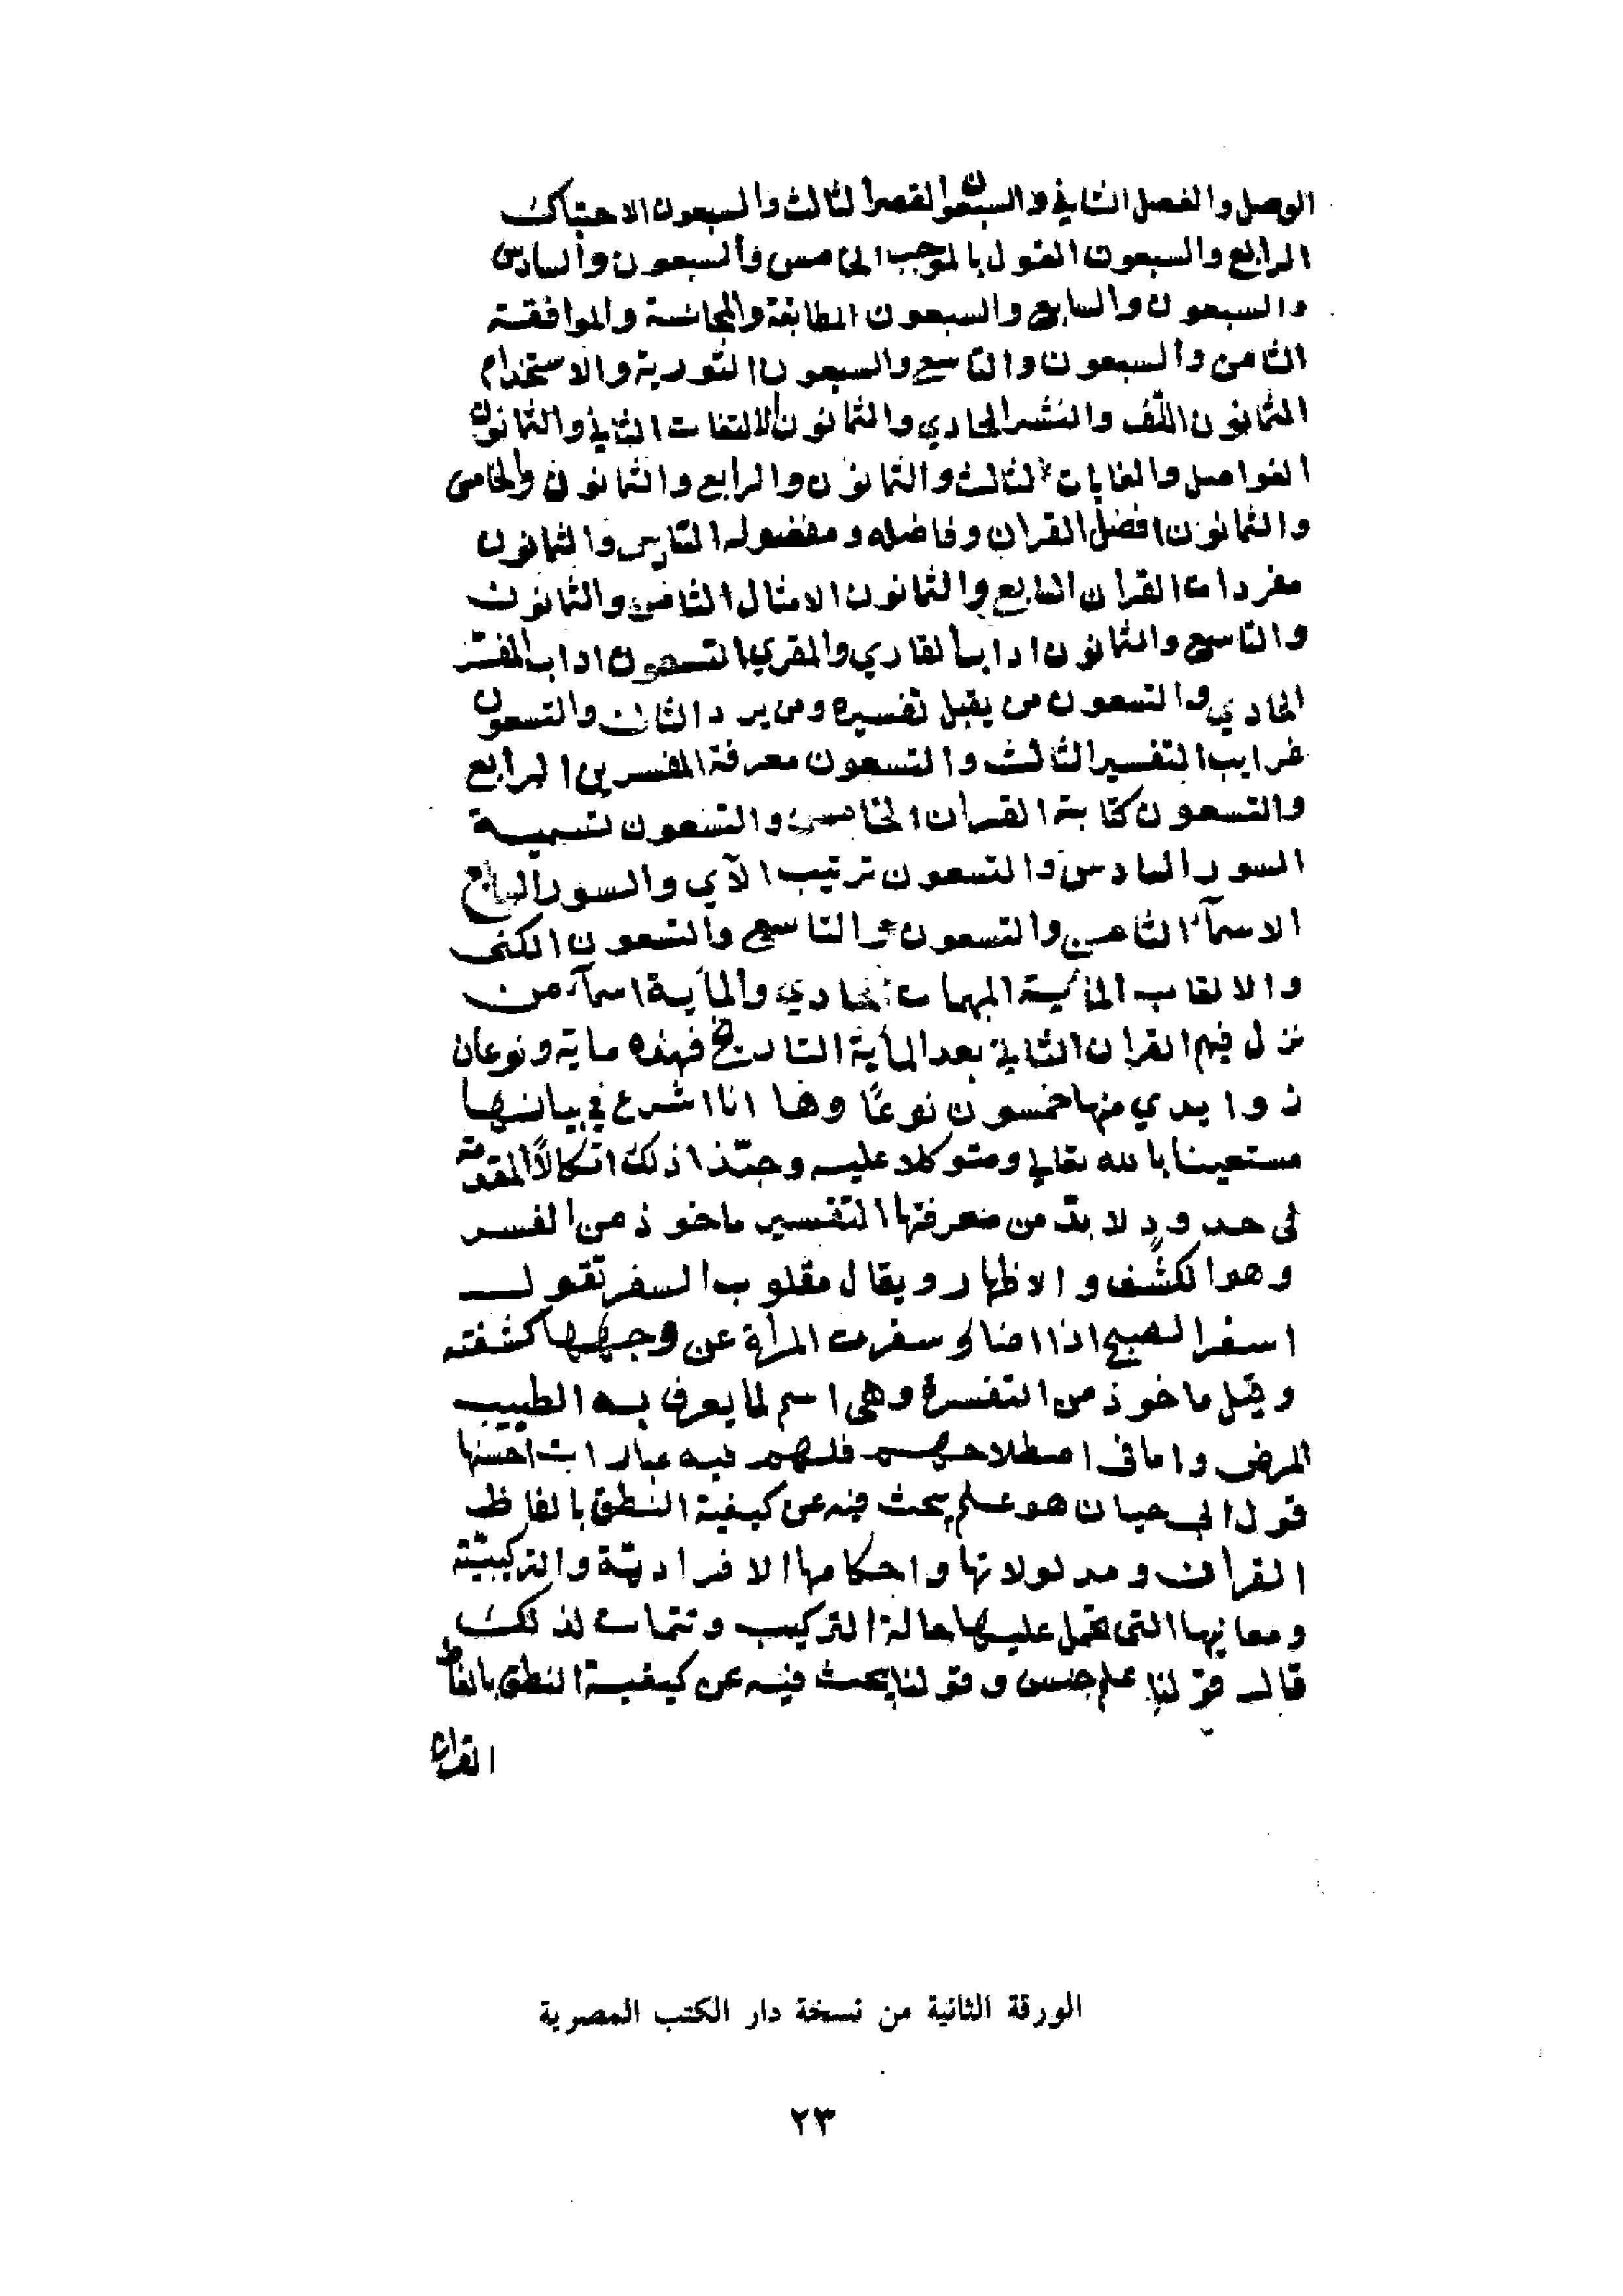 الوصل والفصل الثاني والسبعون القصر الثالث والسبعون الاحتباك
الرابع والسبعون القول بالموجب الخامس والسبعون والسادس
والسبعون والسابع والسبعون المطابقة والمجانسة والموافقة
الثامن والسبعون والتاسع والسبعون التورية والاستخدام
الثمانون اللف والنشر الحادي والثمانون الالتفات الثاني والثمانون
الفواصل والغايات الثالث والثمانون والرابع والثمانون والخامس
والثمانون افضل القران وفاضله ومفضوله السادس والثمانون
مفردات القران السابع والثمانون الامثال الثامن والثمانون
والتاسع والثمانون اداب القاري والمقري التسعون اداب المفسر
الحادي والتسعون من يقبل تفسيره ومن يرد الثاني والتسعون
غرايب التفسير الثالث والتسعون معرفة المفسرين الرابع
والتسعون كتابة القران الخامس والتسعون تسمية
السور السادس والتسعون ترتيب الآي والسور السابع
الاسمآء الثامن والتسعون والتاسع والتسعون الكنى
والالقاب الماية المبهمات الحادي والماية اسمآء من
نزل فيهم القران الثاني بعد الماية التاريخ فهذه ماية ونوعان
زوايدي منها خمسون نوعًا وها انا اشرع في بيانها
مستعينا بالله تعالى ومتوكلا عليه وحبّذا ذلك اتكالًا المقدمة
في حدود لا بدّ من معرفتها التفسير ماخوذ من الفسر
وهو الكشف والاظهار ويقال مقلوب السفر تقول
اسفر الصبح اذا اضا وسفرت المرأة عن وجهها كشفته
وقيل ماخوذ من التفسرة وهي اسم لما يعرف به الطبيب
المرض واما في اصطلاحهم فلهم فيه عبارات احسنها
قول ابي حيان هو علم يبحث فيه عن كيفية النطق بالفاظ
القران ومدلولاتها واحكامها الافرادية والتركيبية
ومعانيها التي تحمل عليها حالة التركيب وتتمات لذلك
قال قولنا علم جنس وقولنا يبحث فيه عن كيفية النطق بالفاظ
القران
الورقة الثانية من نسخة دار الكتب المصرية
٢٣